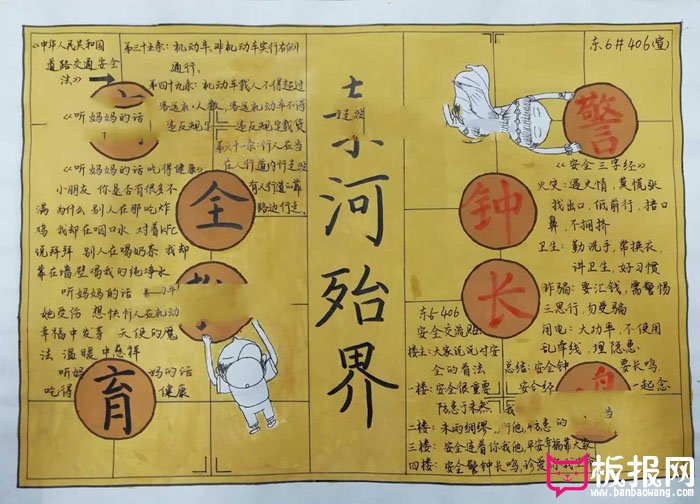 《中华人民共和国
道路交通安全
法》
第三十五条：机动车、非机动车实行右侧
通行。
第四十九条：机动车载人不得超过
客运机动车不得
违反规定载货
第六十一条：行人应当
在人行道内行走
有人行道的靠
路边行走。
《听妈妈的话
《听妈妈的话吃得健康》
小朋友 你是否有很多不
满 为什么 别人在那吃炸
鸡 我却在咽口水 对着KFC
说拜拜 别人在喝奶茶 我却
靠在墙壁喝我的纯净水
听妈妈的话
她受伤 想快
幸福中发芽 天使的魔
法 温暖中慈祥
听妈
妈的话
吃得
健康
全
育
小
河
殆
界
东6#406(宣)
警
钟
长
《安全三字经》
火灾：遇火情，莫慌张
找出口，低前行，捂口
鼻，不拥挤
卫生：勤洗手，常换衣，
讲卫生，好习惯
诈骗：要汇钱，需警惕
三思行，勿受骗
用电：大功率，不使用
乱牵线，埋隐患
总结：安全钟
要长鸣，
安全经
一起念
东6-406
安全交流
楼主：大家说说对安
全的看法
一楼：安全很重要
防患于未然 我
二楼：未雨绸缪
三楼：安全连着你我他，平安幸福靠大家
四楼：安全警钟长鸣，
当
板报网
www.banbaowang.com